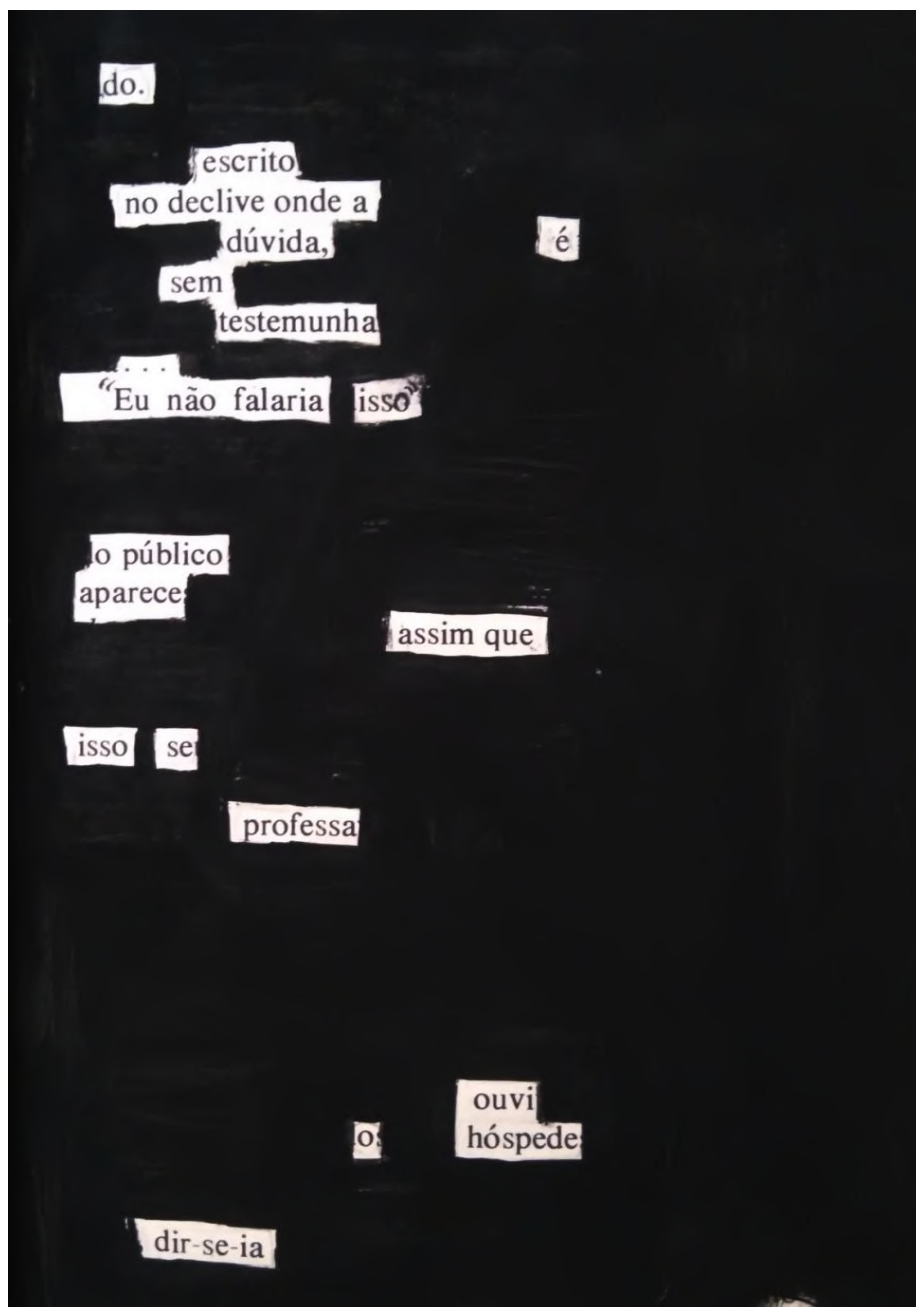 do.
escrito
no declive onde a
dúvida, é
sem
testemunha
...
“Eu não falaria isso”
o público
aparece
assim que
isso se
professa
ouvi
o hóspede
dir-se-ia